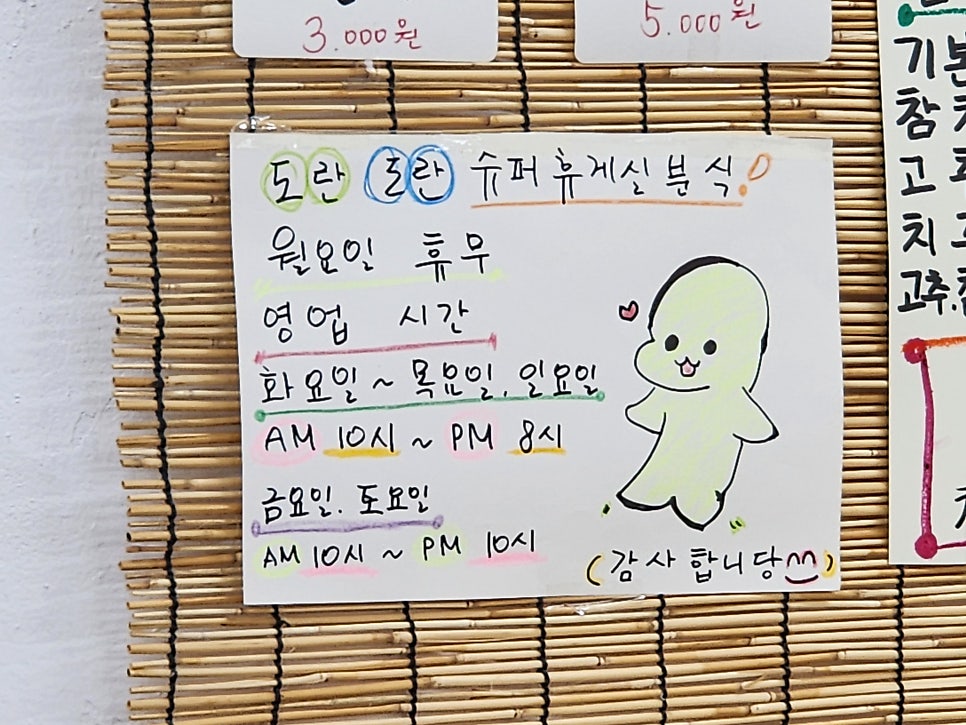 3.000원
5.000원
도란 도란 슈퍼휴게실분식!
월요일 휴무
영업 시간
화요일~목요일.일요일
AM 10시 ~ PM 8시
금요일. 토요일
AM 10시 ~ PM 10시
(감사합니당^^)
기본
참치
고
치
고추.참